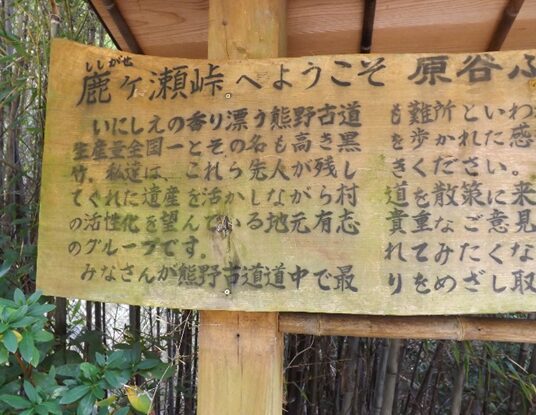 ししがせ
鹿ヶ瀬峠へようこそ 原谷ふ
いにしえの香り漂う熊野古道
生産量全国一とその名も高き黒
竹。私達は、これら先人が残し
てくれた遺産を活かしながら村
の活性化を望んでいる地元有志
のグループです。
みなさんが熊野古道道中で最
も難所といわ
を歩かれた感
きください。
道を散策に来
貴重なご意見
れてみたくな
りをめざし取